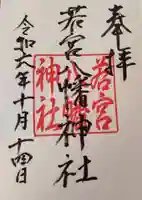 奉拝
若宮八幡神社
若宮
八幡
神社
令和六年十月十四日